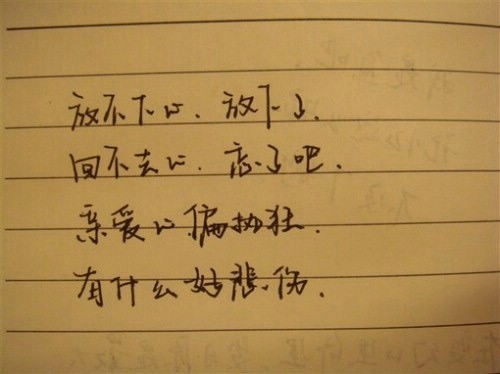 放不下的、放下了.
回不去的、忘了吧.
亲爱的偏执狂.
有什么好悲伤.